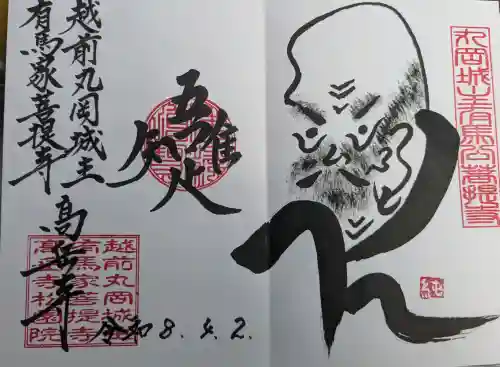 丸岡城主有馬公菩提寺
純
越前丸岡城主
有馬家菩提寺
吾唯知足
高岳寺
越前丸岡城主
有馬家菩提寺
高岳寺松園院
令和8.4.2.